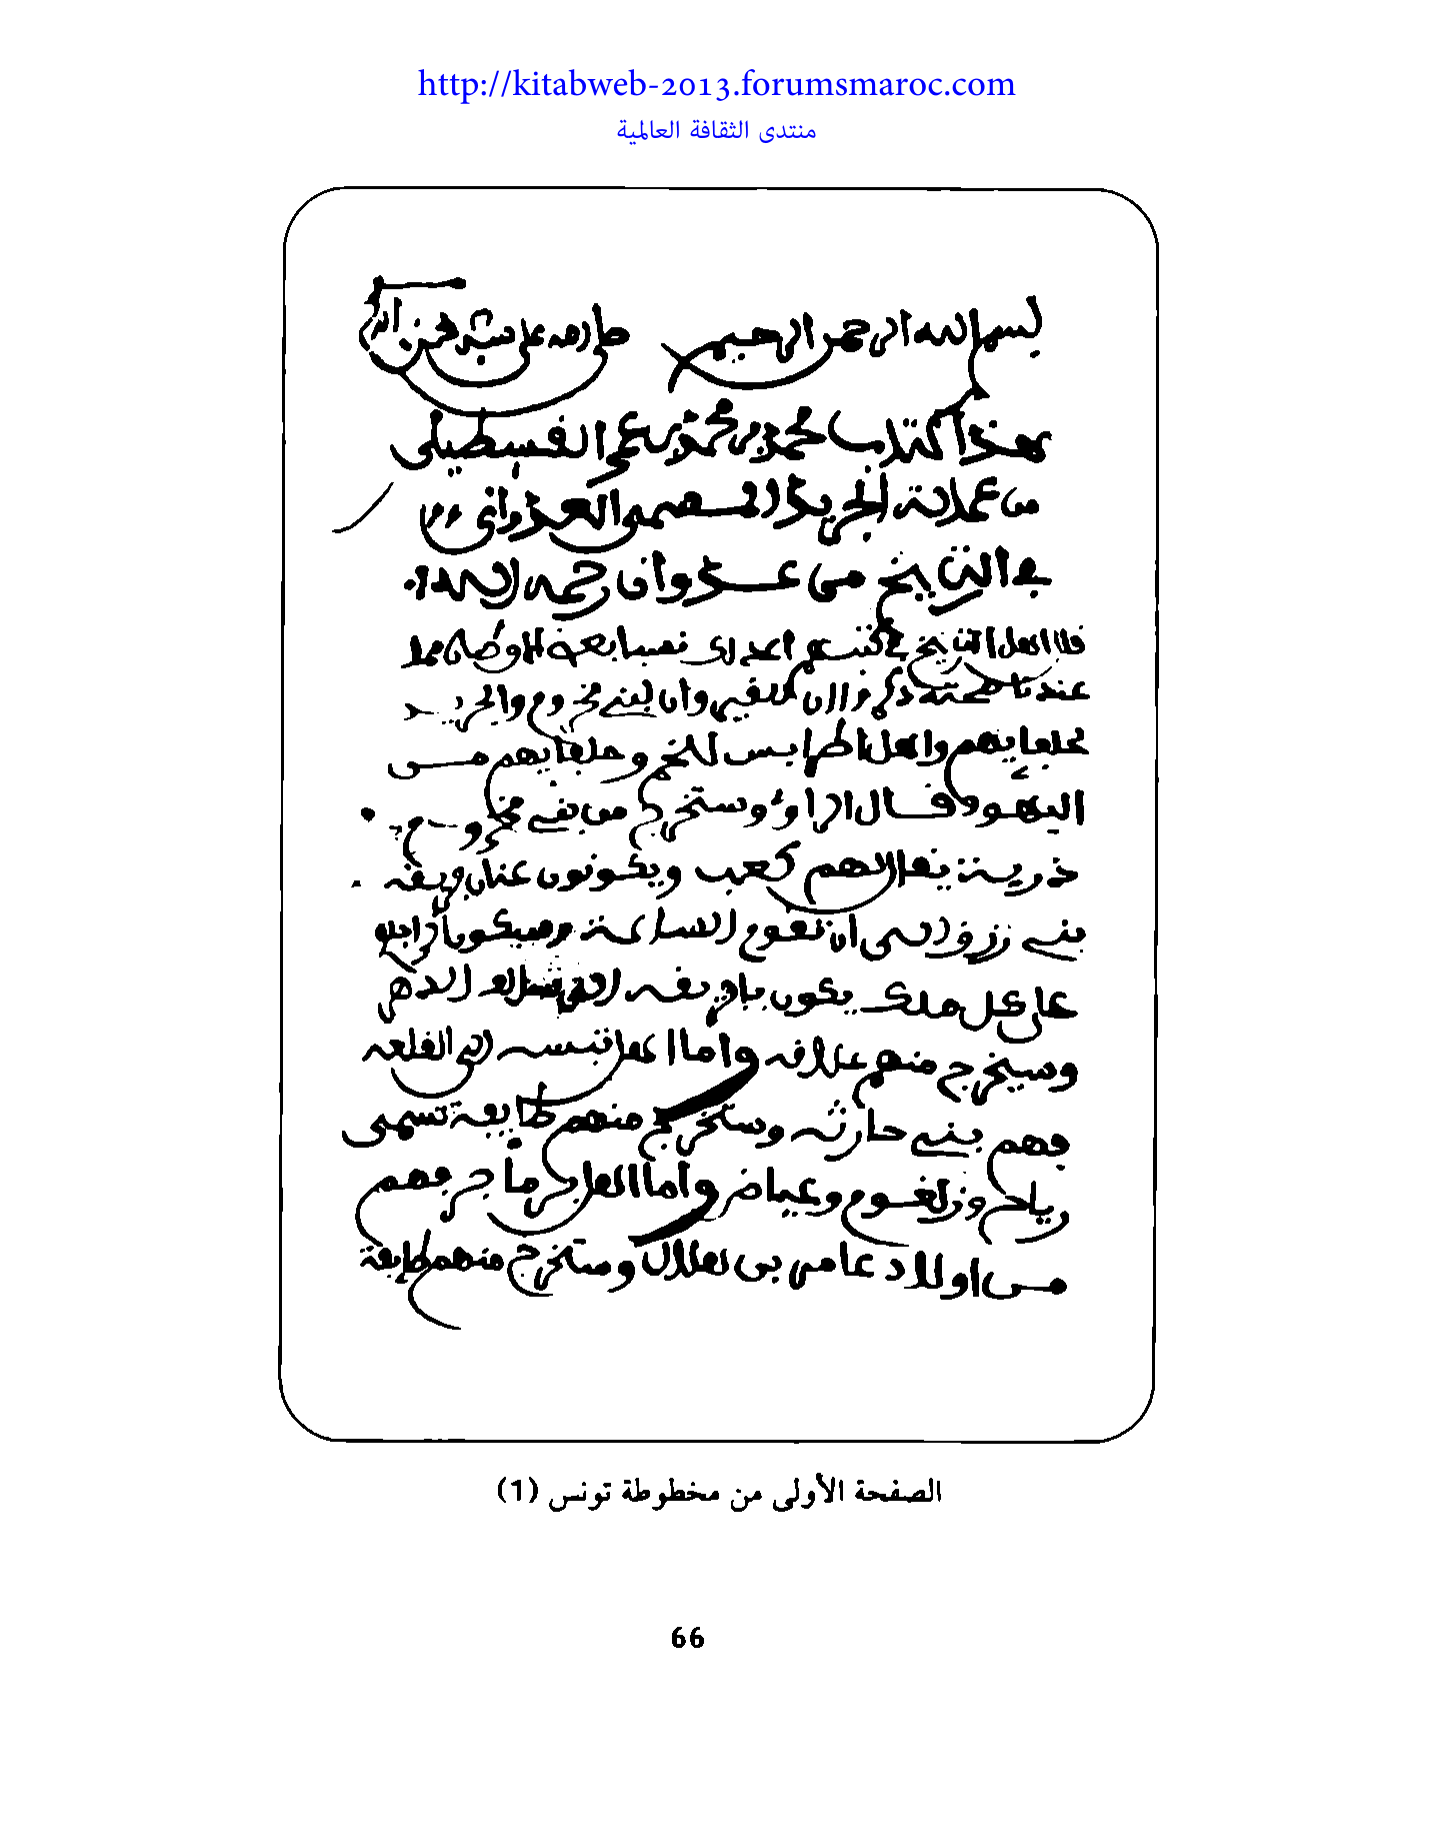 http://kitabweb-2013.forumsmaroc.com
منتدى الثقافة العالمية
بسم الله الرحمن الرحيم صلى الله على سيدنا
هذا كتاب محمد بن محمد بن علي القسطيلي
من عمالة الجريد المسمى العدواني
في التاريخ من عدوان رحمه الله
قال اهل التاريخ في
عند ذكر وان لبني مخزوم والجريد
خلفايهم واهل اطرابلس للخم وحلفايهم مـن
اليهود قـال الراوي وستخرج من بني مخزوم
ذرية يقال لهم كعب ويكونون عنان افريقه
بني الى ان تقوم الساعة وسيكون
على كل ملك يكون بافريقه الى الدهر
وسيخرج منهم علاقه واما اهل تبسه الى القلعه
فهم بني حارثه وستخرج منهم طايفة تسمى
رياح وزلغوم وعياض واما اهل فهم
مـن اولاد عامر بن هلال وستخرج منهم طايفة
الصفحة الأولى من مخطوطة تونس (1)
66